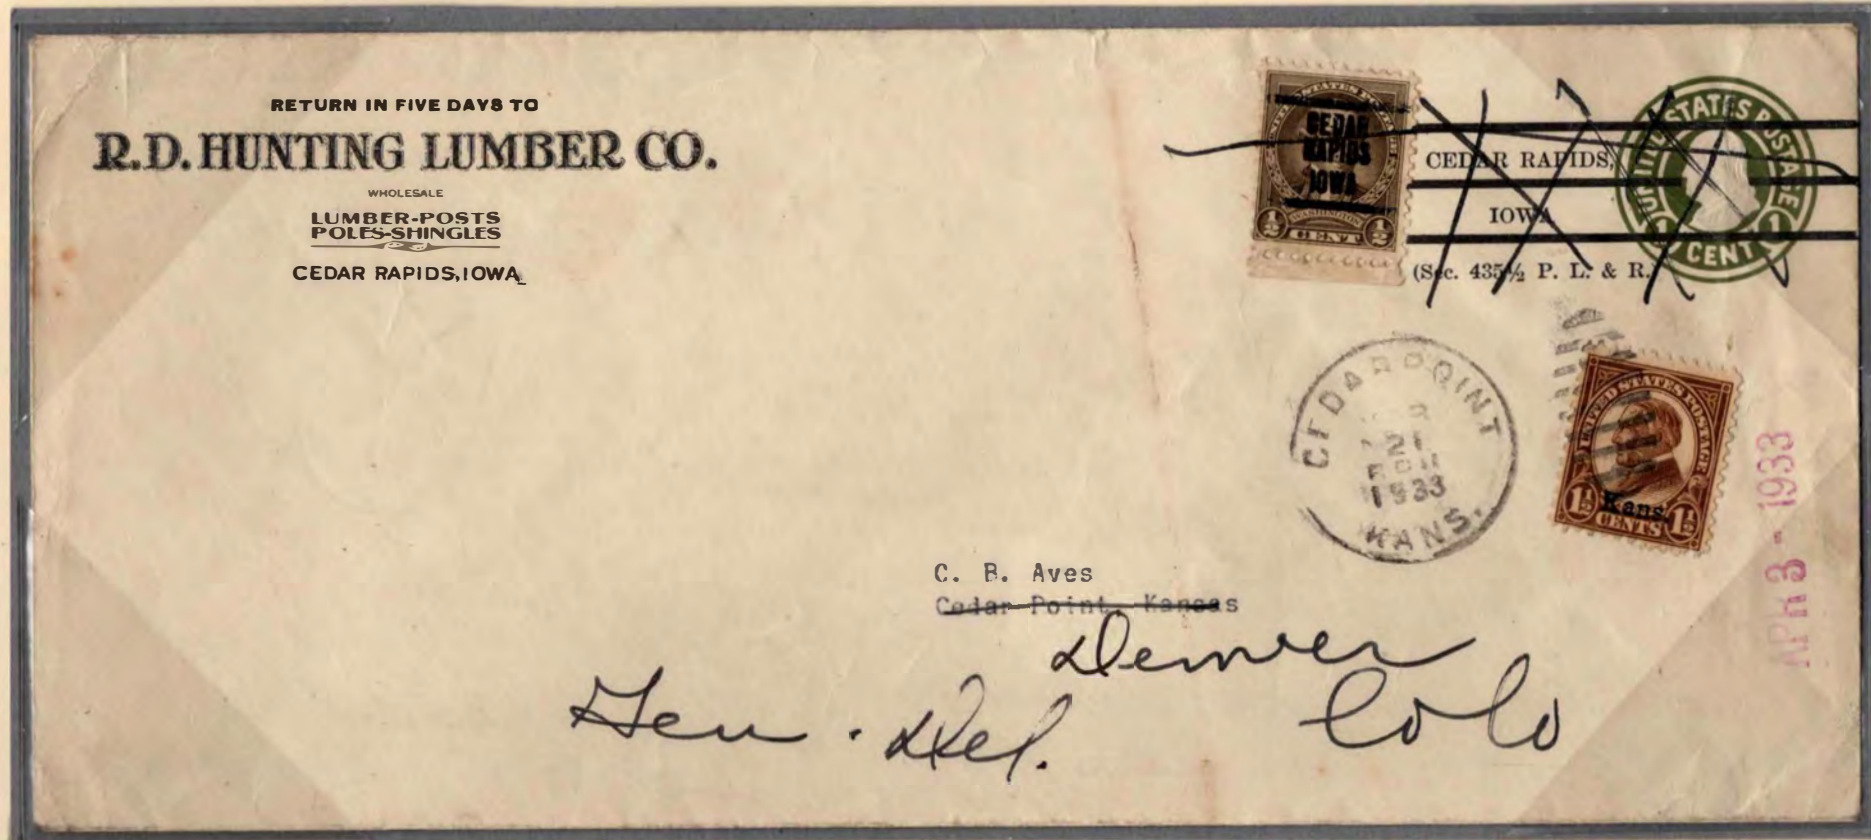 RETURN IN FIVE DAYS TO
R.D. HUNTING LUMBER CO.
WHOLESALE
LUMBER-POSTS
POLES-SHINGLES
CEDAR RAPIDS, IOWA
UNITED STATES POSTAGE
CEDAR
RAPIDS
IOWA
WASHINGTON
½ CENT ½
CEDAR RAPIDS,
IOWA
(Sec. 435½ P. L. & R.)
UNITED STATES POSTAGE
1 CENT 1
CEDAR POINT
21
1933
KANS.
UNITED STATES POSTAGE
Kans.
1½ CENTS 1½
APR 3 - 1933
C. B. Aves
Cedar Point, Kansas
Denver
Colo
Gen. Del.